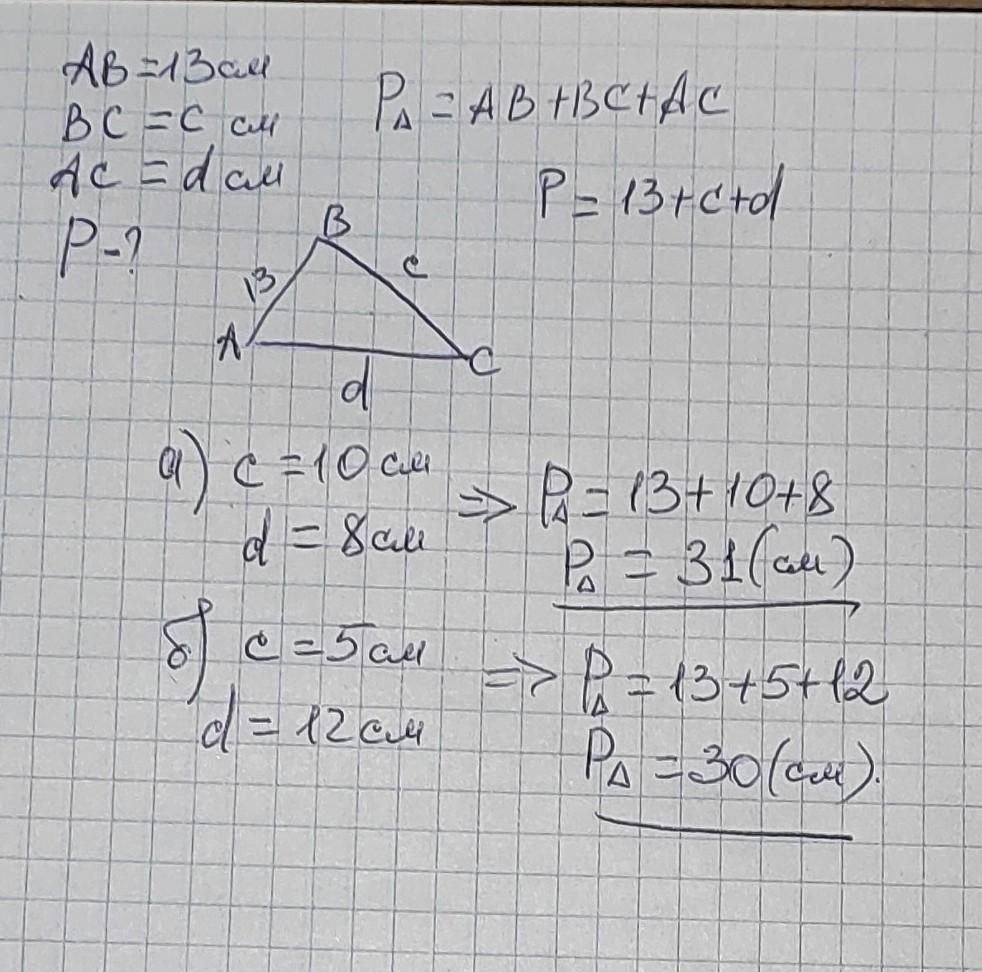 AB = 13 см
BC = c см
AC = d см
P - ?
P△ = AB + BC + AC
P = 13 + c + d
B
13
c
A
C
d
а) c = 10 см
d = 8 см
⇒ P△ = 13 + 10 + 8
P△ = 31 (см)
б) c = 5 см
d = 12 см
⇒ P△ = 13 + 5 + 12
P△ = 30 (см).